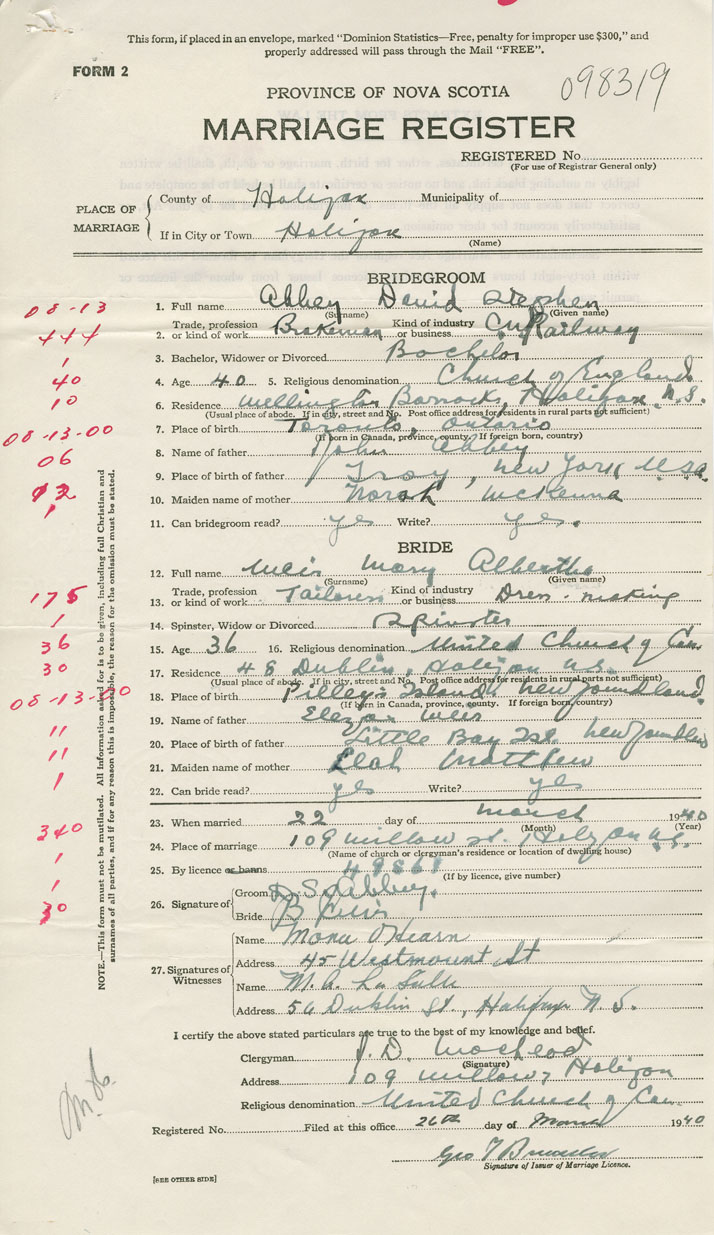 This form, if placed in an envelope, marked "Dominion Statistics—Free, penalty for improper use $300," and
properly addressed will pass through the Mail "FREE".
FORM 2
098319
PROVINCE OF NOVA SCOTIA
MARRIAGE REGISTER
REGISTERED No.
(For use of Registrar General only)
PLACE OF MARRIAGE
County of Halifax Municipality of
If in City or Town Halifax
(Name)
BRIDEGROOM
08-13
1. Full name Abbey David Stephen
(Surname) (Given name)
444
2. Trade, profession or kind of work Brakeman Kind of industry or business C.N. Railway
1
3. Bachelor, Widower or Divorced Bachelor
40
4. Age 40 5. Religious denomination Church of England
10
6. Residence Wellington Barracks, Halifax N.S.
(Usual place of abode. If in city, street and No. Post office address for residents in rural parts not sufficient)
08-13-00
7. Place of birth Toronto, Ontario
(If born in Canada, province, county. If foreign born, country)
06
8. Name of father John Abbey
9. Place of birth of father Troy, New York USA.
12
10. Maiden name of mother Norah McKenna
1
11. Can bridegroom read? yes Write? yes.
BRIDE
12. Full name Weir Mary Albertha
(Surname) (Given name)
175
13. Trade, profession or kind of work Tailoress Kind of industry or business Dress-making
1
14. Spinster, Widow or Divorced Spinster
36
15. Age 36 16. Religious denomination United Church of Can
30
17. Residence 48 Dublin, Halifax N.S.
(Usual place of abode. If in city, street and No. Post office address for residents in rural parts not sufficient)
08-13-00
18. Place of birth Pilley's Island Newfoundland
(If born in Canada, province, county. If foreign born, country)
11
19. Name of father Weir
11
20. Place of birth of father Little Bay Isl. Newfoundland
21. Maiden name of mother Leah Matthew
1
22. Can bride read? yes Write? yes
23. When married 22 day of March 1940
(Month) (Year)
340
24. Place of marriage 109 Willow St. Halifax N.S.
(Name of church or clergyman's residence or location of dwelling house)
1
25. By licence or banns 49868
(If by licence, give number)
1
26. Signature of
Groom D. S. Abbey.
30
Bride
27. Signatures of Witnesses
Name Mona O'Hearn
Address 45 Westmount St
Name M. A.
Address 56 Dublin St., Halifax N.S.
NOTE.—This form must not be mutilated. All information asked for is to be given, including full Christian and
surnames of all parties, and if for any reason this is impossible, the reason for the omission must be stated.
I certify the above stated particulars are true to the best of my knowledge and belief.
Clergyman J. D. MacLeod
(Signature)
Address 109 Willow, Halifax
Religious denomination United Church of Can.
Registered No. Filed at this office 26th day of March 1940
Geo T
Signature of Issuer of Marriage Licence.
[SEE OTHER SIDE]